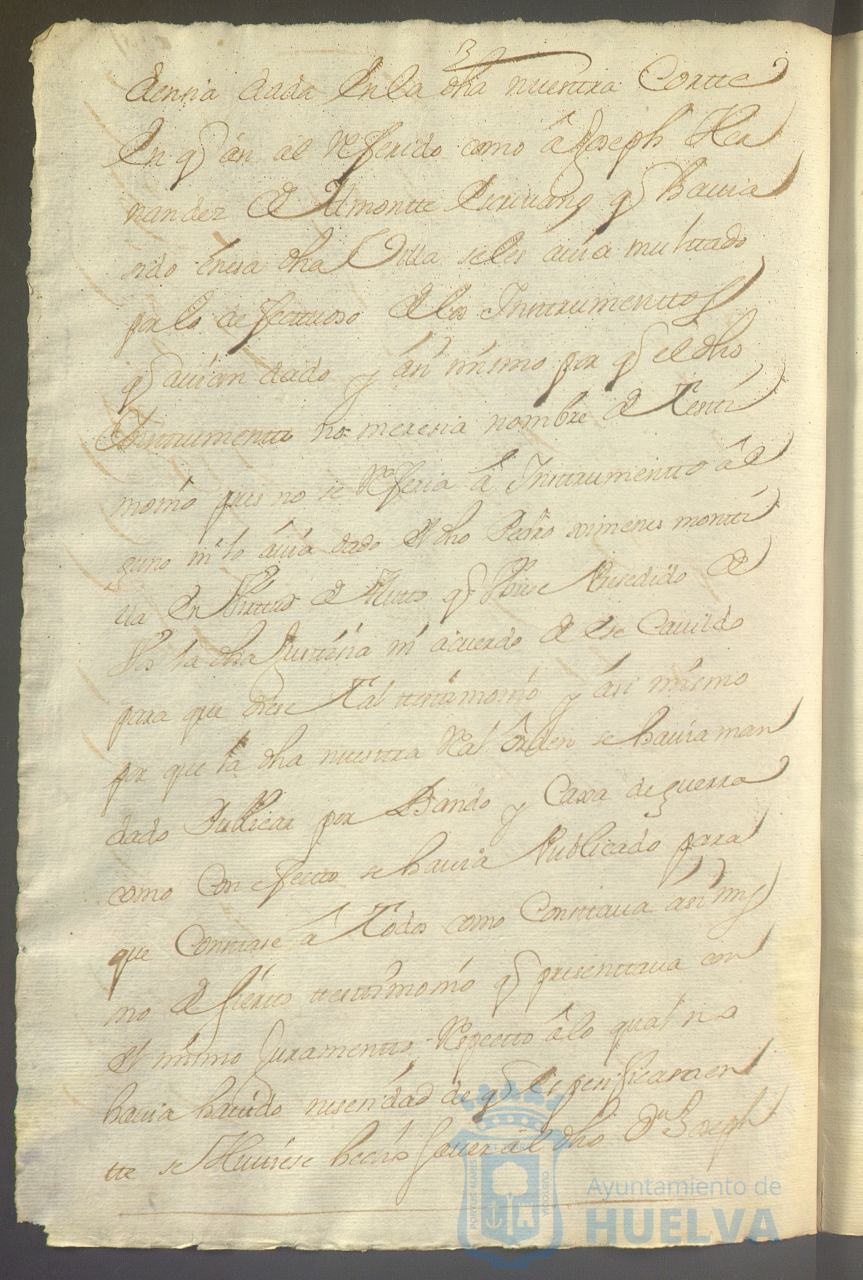 dennia dada En la dha nuestra Cortte
En q an al Referido como â Joseph Her
nandez de Almontte Escriuano q hauia
sido En esa dha Villa se les auia multado
por lo defectuoso de los Instrumenttos
q auian dado y asi mismo por q el dho
Instrumento no meresia nombre de Testi
monio pues no se Referia â Instrumentto âl
guno ni lo auia dado el dho Pedro ximenes montti
la dha Justicia ni acuerdo de ese Cauildo
para que diese Tal testimonio y asi mismo
por que la dha nuestra Real orden se hauia man
dado Publicar por Bando y Caxa de guerra
como Con efecto se hauia Publicado para
que Constase â Todos como Constaua asi mis
mo de sierto testimonio q presentaua con
el mismo Juramentto Respecto âlo qual no
hauia hauido nesesidad de q espesificamen
te se Huuiese hecho sauer al dho Dn Joseph
Ayuntamiento de
HUELVA